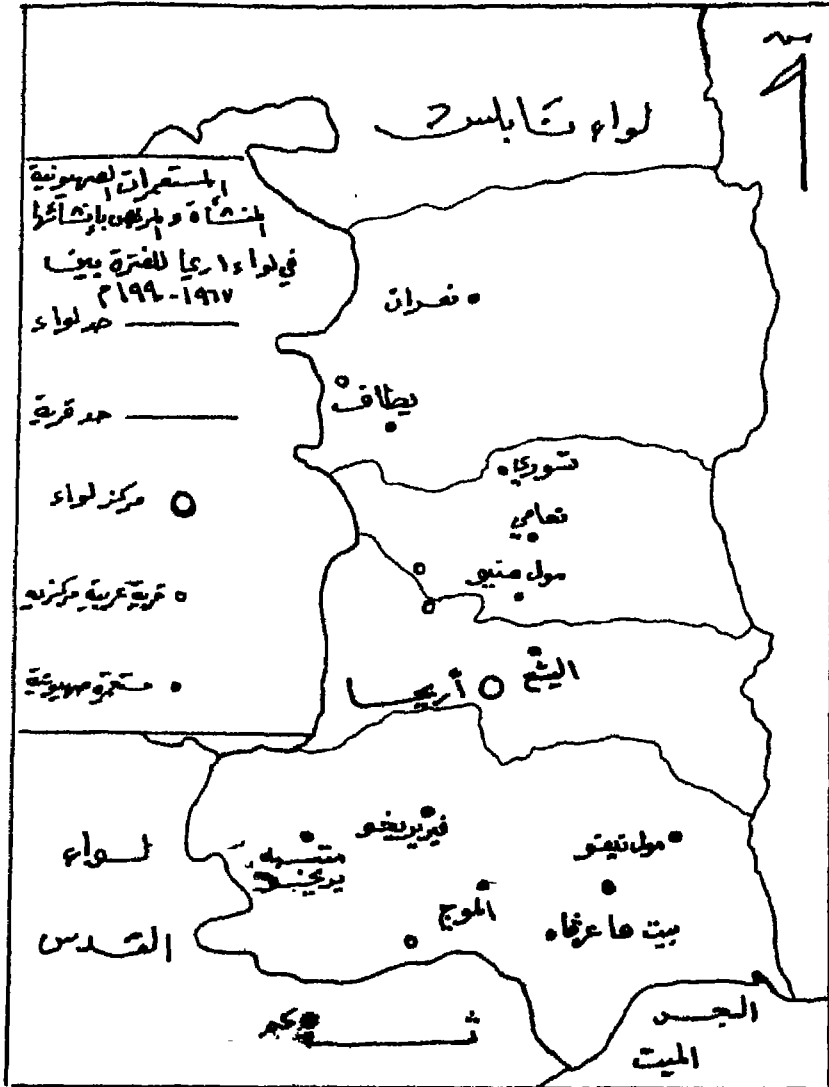 س
لواء نابلس
المستعمرات الصهيونية
المنشأة والمزمع بإنشائها
في لواء اريحا للفترة بين
١٩٦٧-١٩٩٠م
حد لواء
حد قرية
مركز لواء
قرية عربية مركزية
مستعمرة صهيونية
نعران
يطاف
تنوري
نعامي
مول منيو
اليشع
أريحا
فيريريخو
متسبه
يريخبو
مول نيفو
الموج
بيت ها عرفاه
لواء
القدس
البحر
الميت